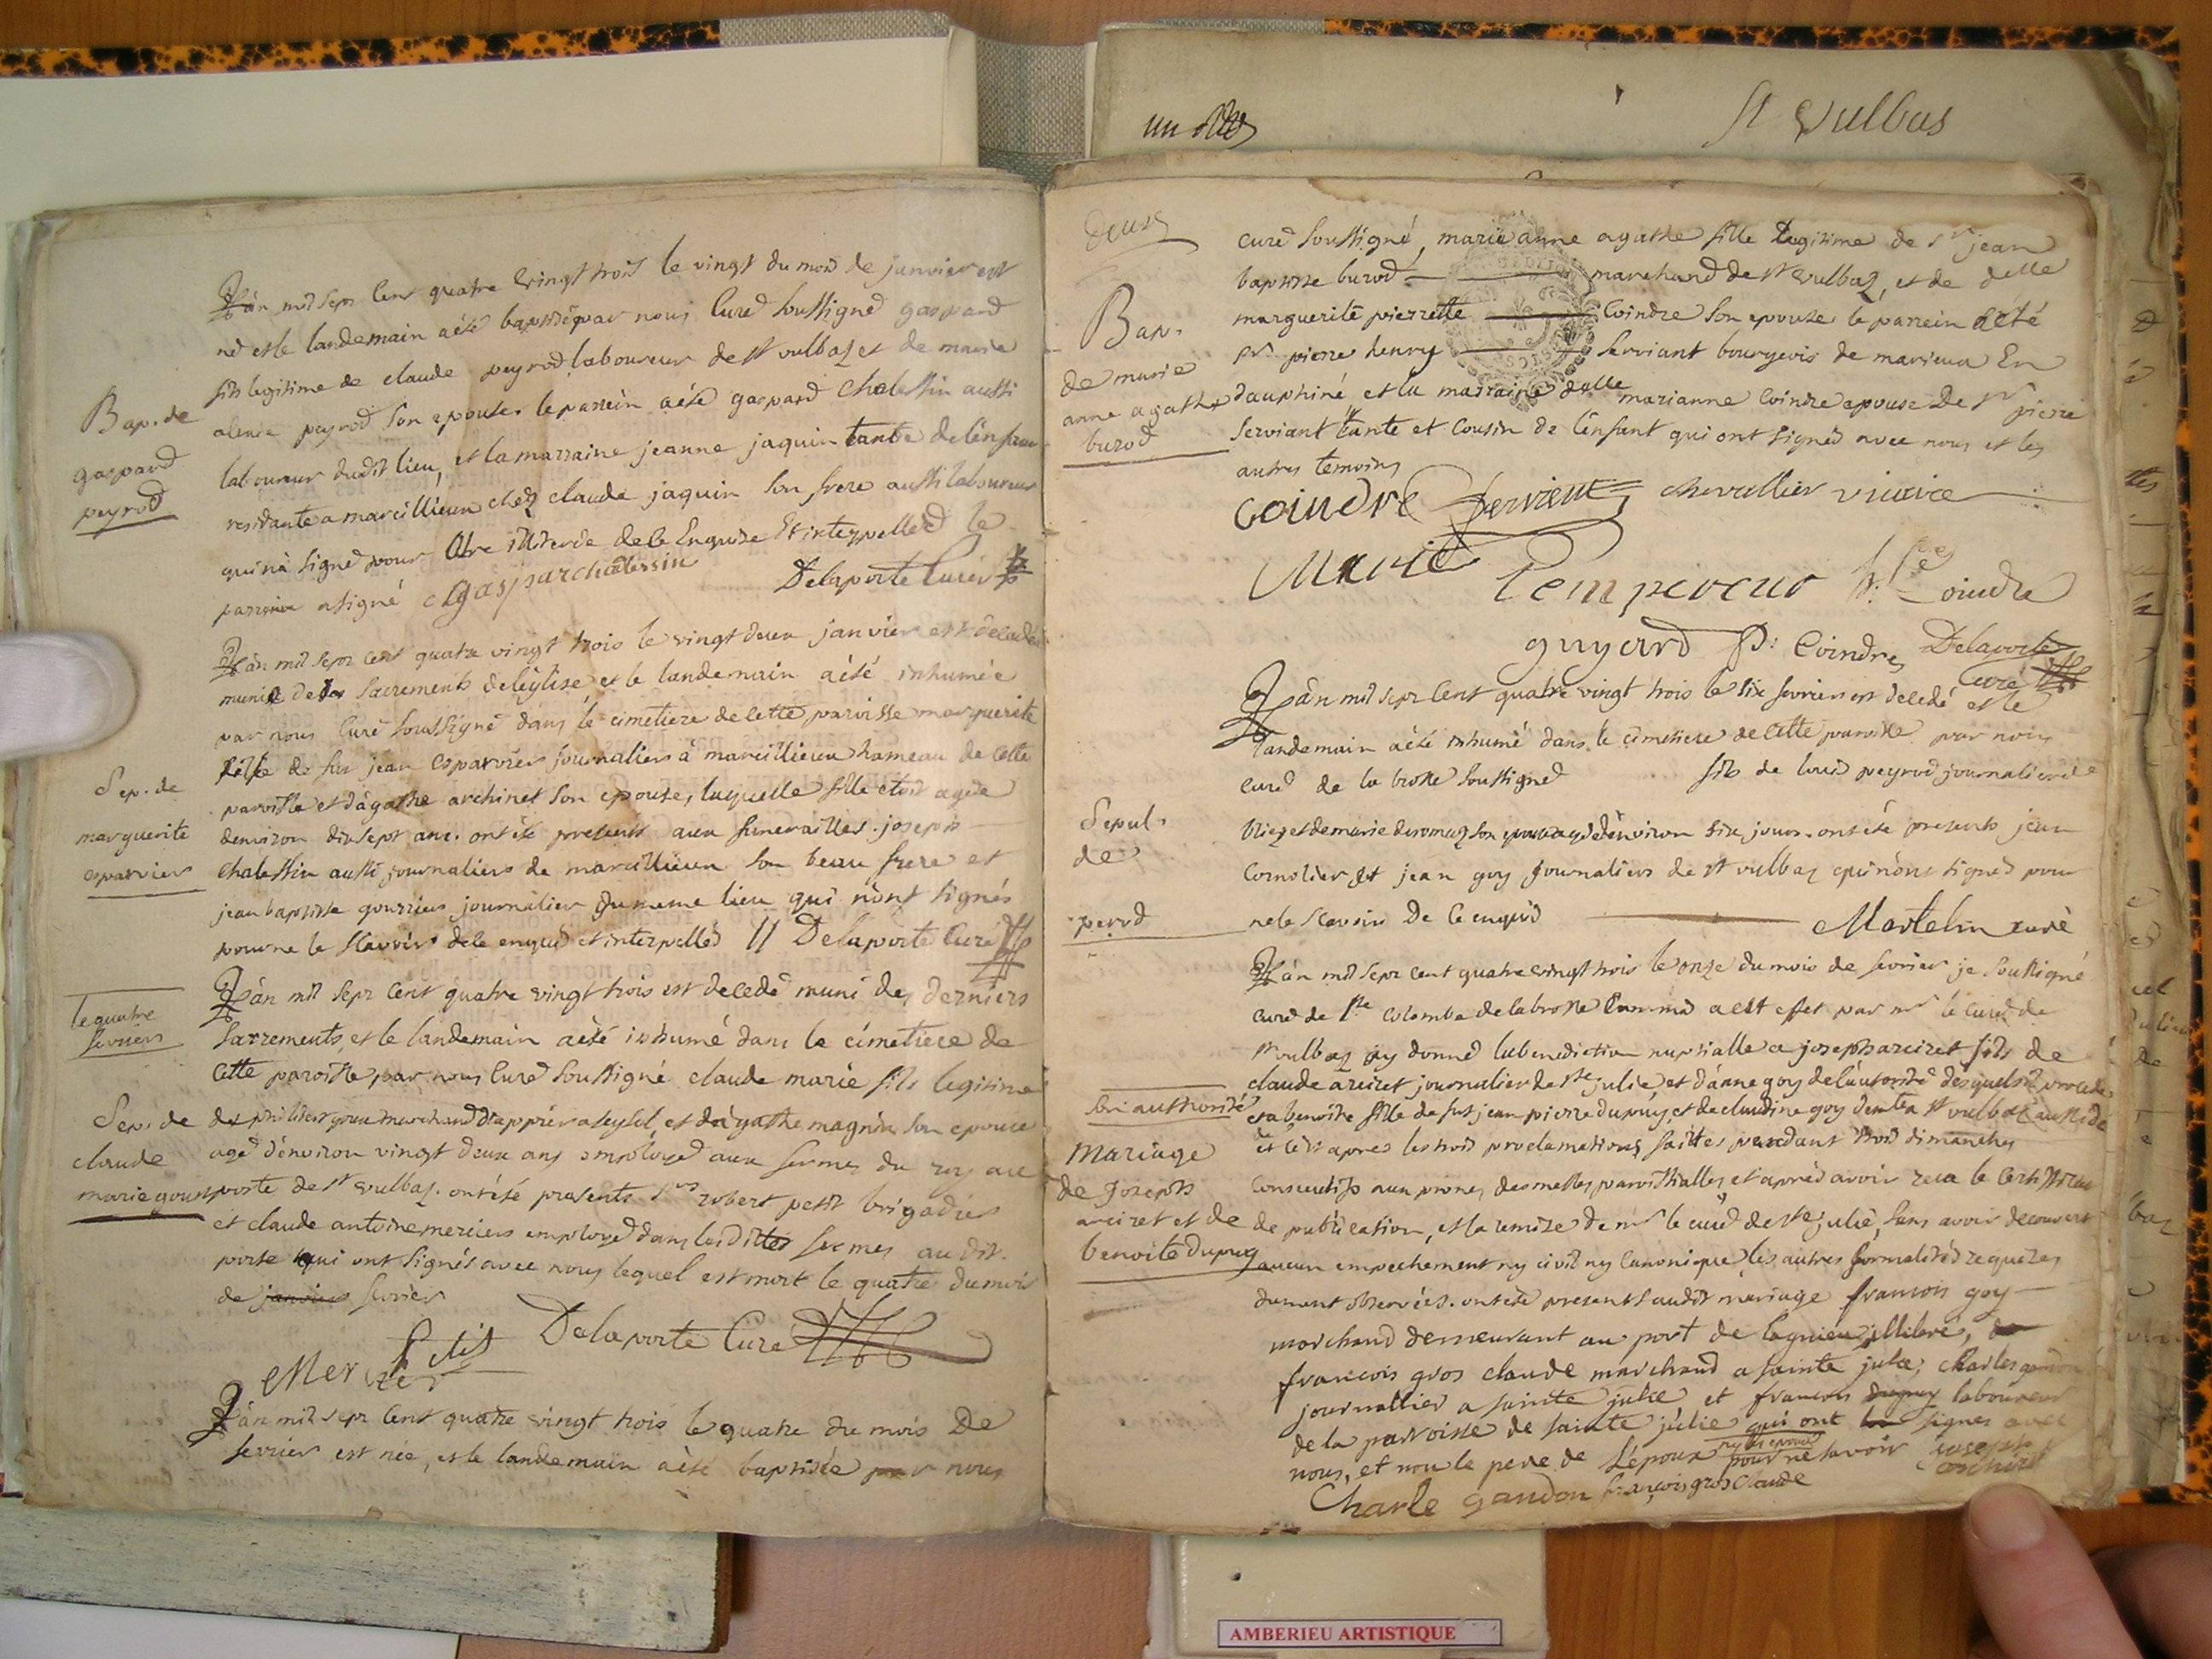 un
St Vulbas
L'an mil sept cent quatre vingt trois le vingt du mois de janvier est
né et le landemain a été baptisé par nous Curé soussigné gaspard
fils legitime de claude peyrod laboureur de st vulbaz et de marie
peyrod son epouse, le parrein a été gaspard Chalessin aussi
laboureur dudit lieu, et la marraine jeanne jaquin tante de l'enfant
residante a marcillieux chez claude jaquin son frere aussi laboureur
qui n'a signé pour etre de ce Enquise Et interpelled le
parrein a signé gaspar chalessin Delaporte Curé
Bap. de
gaspard
peyrod
L'an mil sept cent quatre vingt trois le vingt deux janvier est decedée
munie des sacrements de l'eglise et le landemain a été inhumée
par nous Curé soussigné dans le cimetiere de cette paroisse marguerite
fille de fut jean esparvier journaliers à marcillieux hameau de cette
paroisse et d'agathe archinet son epouse, laquelle fille etoit agée
d'environ dix sept ans. ont été presents aux funerailles joseph
Chalessin aussi journaliers de marcillieux son beau frere et
jean baptiste gourrier journalier du meme lieu qui n'ont signés
pour ne le sçavoir de ce enquis et interpellés // Delaporte Curé
Sep. de
marguerite
esparvier
L'an mil sept cent quatre vingt trois est decedé muni des derniers
Sacrements, et le landemain a été inhumé dans le cimetiere de
cette paroisse, par nous Curé soussigné claude marie fils legitime
de marchand drappier a seyssel, et d'agathe magnin son epouse
agé d'environ vingt deux ans employé aux fermes du roy au
porte de st vulbaz. ont été presents Srs robert petit brigadier
et claude antoine mercier employé dans lesdittes fermes au dit
porte qui ont signés avec nous lequel est mort le quatre du mois
de janvier fevrier
Petit Delaporte Curé
Mercier
le quatre
fevrier
Sep. de
claude
marie
L'an mil sept cent quatre vingt trois le quatre du mois De
fevrier est née, et le landemain a été baptisée par nous
deux
curé soussigné, marie anne agathe fille legitime de sr jean
baptiste burod marchand de st vulbaz, et de delle
marguerite pierrette Coindre son epouse le parrein a été
sr. pierre henry serviant bourgeois de En
dauphiné et la marraine delle marianne Coindre epouse De sr pierre
serviant tante et Cousin de l'enfant qui ont signés avec nous et les
autres temoins
Bap.
de marie
anne agathe
burod
coindre servient chevallier vicaire
Marie Lempereur Coindre
guyard P: Coindre Delaporte
Curé
L'an mil sept cent quatre vingt trois le six fevrier est decedé et le
landemain a été inhumé dans le cimetiere de cette paroisse par nous
curé de la brosse soussigné fils de louis peyrod journalier de
et de marie son epouse agé d'environ six jours. ont été presents jean
Cornolier et jean goy journaliers de st vulbaz qui n'ont signés pour
ne le sçavoir De ce enquis Martelin curé
Sepul.
de
perod
L'an mil sept cent quatre vingt trois le onze du mois de fevrier je soussigné
curé de Ste Colombe de la brosse Commis a cet effet par mr le curé de
st vulbaz ay donné la benediction nuptialle a joseph arciret fils de
claude arciret journalier de ste julie, et d'anne goy de l'autorité desquels il procede
et a benoite fille de fut jean pierre dupuy, et de claudine goy de st vulbaz aussi de
et ce apres les trois proclamations faittes pendant trois dimanches
Consecutifs aux prones des messes paroissialles, et apres avoir reçu le certificat
de publication, et la remise de mr le curé de ste julie, sans avoir decouvert
aucun empechement ny civil ny Canonique, les autres formalités requises
dument observées. ont été presents audit mariage francois goy
marchand demeurant au port de lagnieu illitéré,
francois gros claude marchand a sainte julie, charles gandon
journallier a sainte julie et francois dupuy laboureur
de la parroisse de sainte julie qui ont signes avec
nous, et non le pere de l'époux ny les epoux pour ne savoir
Mariage
de joseph
arciret et de
benoite dupuy
Charle gandon françois gros Claude joseph
AMBERIEU ARTISTIQUE